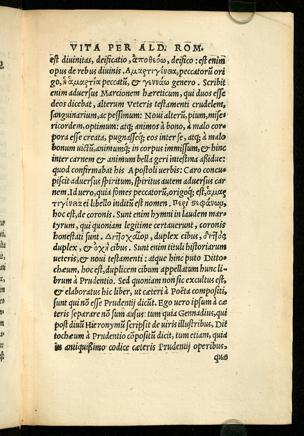 VITA PER ALD. ROM.
est diuinitas, deificatio, ἀποθεόω, deifico: est enim
opus de rebus diuinis. Ἁμαρτιγένεια, peccatorũ ori
go, ἁμαρτία peccatũ, & γεννάω genero. Scribit
enim aduersus Marcionem hæreticum, qui duos esse
deos dicebat, alterum Veteris testamenti crudelem,
sanguinarium, ac pessimum: Noui alterũ, pium, mise
ricordem, optimum: atq; animos à bono, à malo corpo
ra esse creata, pugnasseq; eos inter se, atq; à malo
bonum uictũ, animumq; in corpus immissum, & hinc
inter carnem & animum bella geri intestina aßidue:
quod confirmabat his Apostoli uerbis: Caro concu-
piscit aduersus spiritum, spiritus autem aduersus car
nem. Id uero, quia fomes peccatorũ, origoq; est, ἁμαρ
τιγένεια est libello inditũ est nomen, Περὶ στεφάνων,
hoc est, de coronis. Sunt enim hymni in laudem mar-
tyrum, qui quoniam legitime certauerunt, coronis
honestati sunt. Διττοχαῖον, duplex cibus, διττὸς
duplex, & ὀχὴ cibus. Sunt enim tituli historiarum
ueteris, & noui testamenti: atque hinc puto Ditto-
chæum, hoc est, duplicem cibum appellatum hunc li-
brum à Prudentio. Sed quoniam non sic excultus est,
& elaboratus hic liber, ut cæteri à Poëta compositi,
sunt qui nõ esse Prudentij dicũt. Ego uero ipsum à cæ
teris separare nõ sum ausus: tum quia Gennadius, qui
post diuũ Hieronymũ scripsit de uiris illustribus, Dit
tochæum à Prudentio cõpositũ dicit, tum etiam, quia
in antiquißimo codice cæteris Prudentij operibus,
quæ